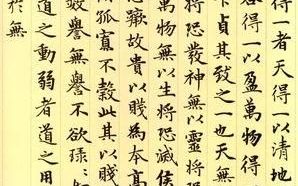 得一者天得一以清地
得一以盈萬物得
下貞其致之一也天無
將恐發神無以靈將恐
萬物無以生將恐滅侯
恐蹶故貴以賤為本高
孤寡不穀此其以賤
譽無譽不欲琭
道之動弱者道之用
於無